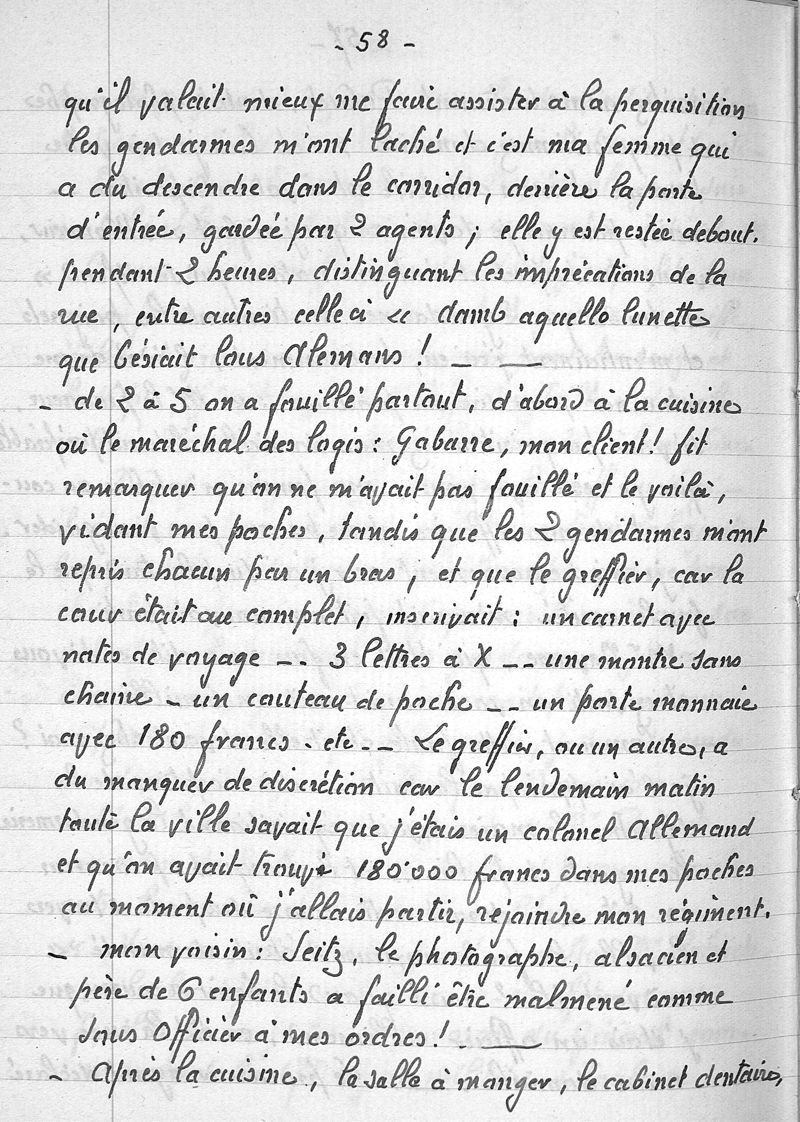 - 58 -
qu'il valait mieux me faire assister à la perquisition
les gendarmes m'ont laché et c'est ma femme qui
a du descendre dans le corridor, derrière la porte
d'entrée, gardée par 2 agents ; elle y est restée debout.
pendant 2 heures, distinguant les imprécations de la
rue, entre autres celle ci « damb aquello lunette
que bésiait lous Alemans ! _ _
- de 2 à 5 on a fouillé partout, d'abord à la cuisine
où le maréchal des logis : Gabarre, mon client ! fit
remarquer qu'on ne m'avait pas fouillé et le voilà,
vidant mes poches, tandis que les 2 gendarmes m'ont
repris chacun par un bras, et que le greffier, car la
cour était au complet, inscrivait : un carnet avec
notes de voyage -- 3 lettres à X -- une montre sans
chaine - un couteau de poche -- un porte monnaie
avec 180 francs - etc -- Le greffier, ou un autre, a
du manquer de discrétion car le lendemain matin
toute la ville savait que j'étais un colonel Allemand
et qu'on avait trouvé 180.000 francs dans mes poches
au moment où j'allais partir, rejoindre mon régiment.
- mon voisin : Seitz, le photographe, alsacien et
père de 6 enfants a failli être malmené comme
sous officier à mes ordres ! _ _
- Après la cuisine, la salle à manger, le cabinet dentaire,